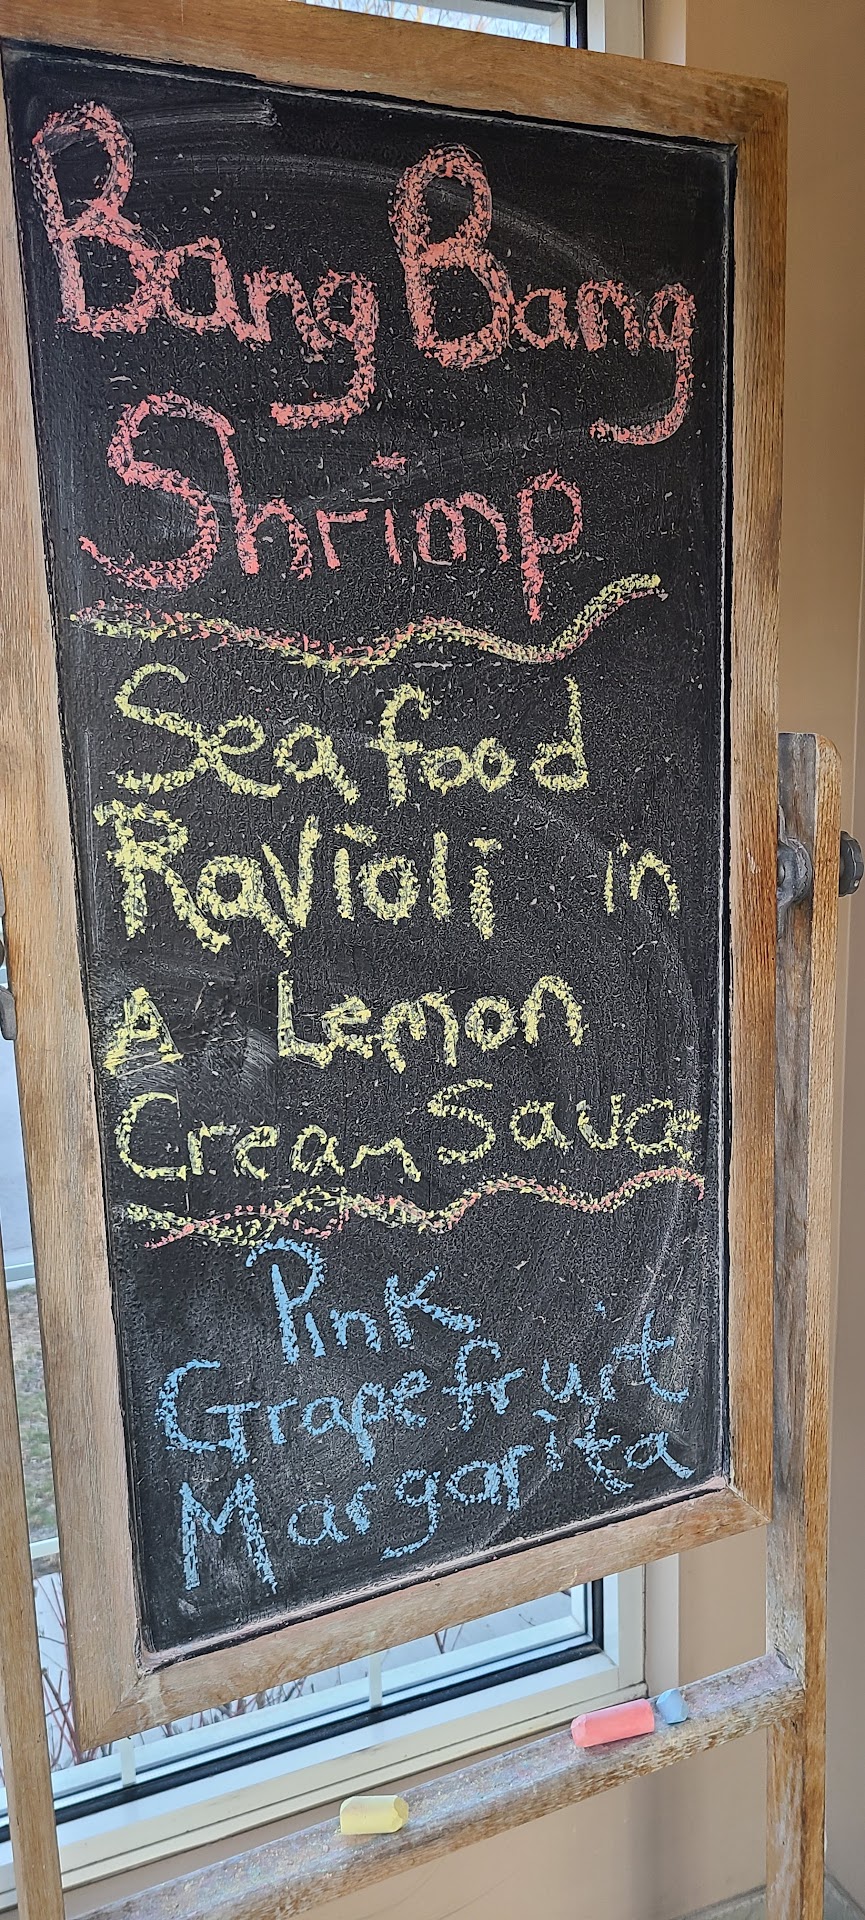 Bang Bang
Shrimp
Seafood
Ravioli in
A Lemon
Cream Sauce
Pink
Grapefruit
Margarita